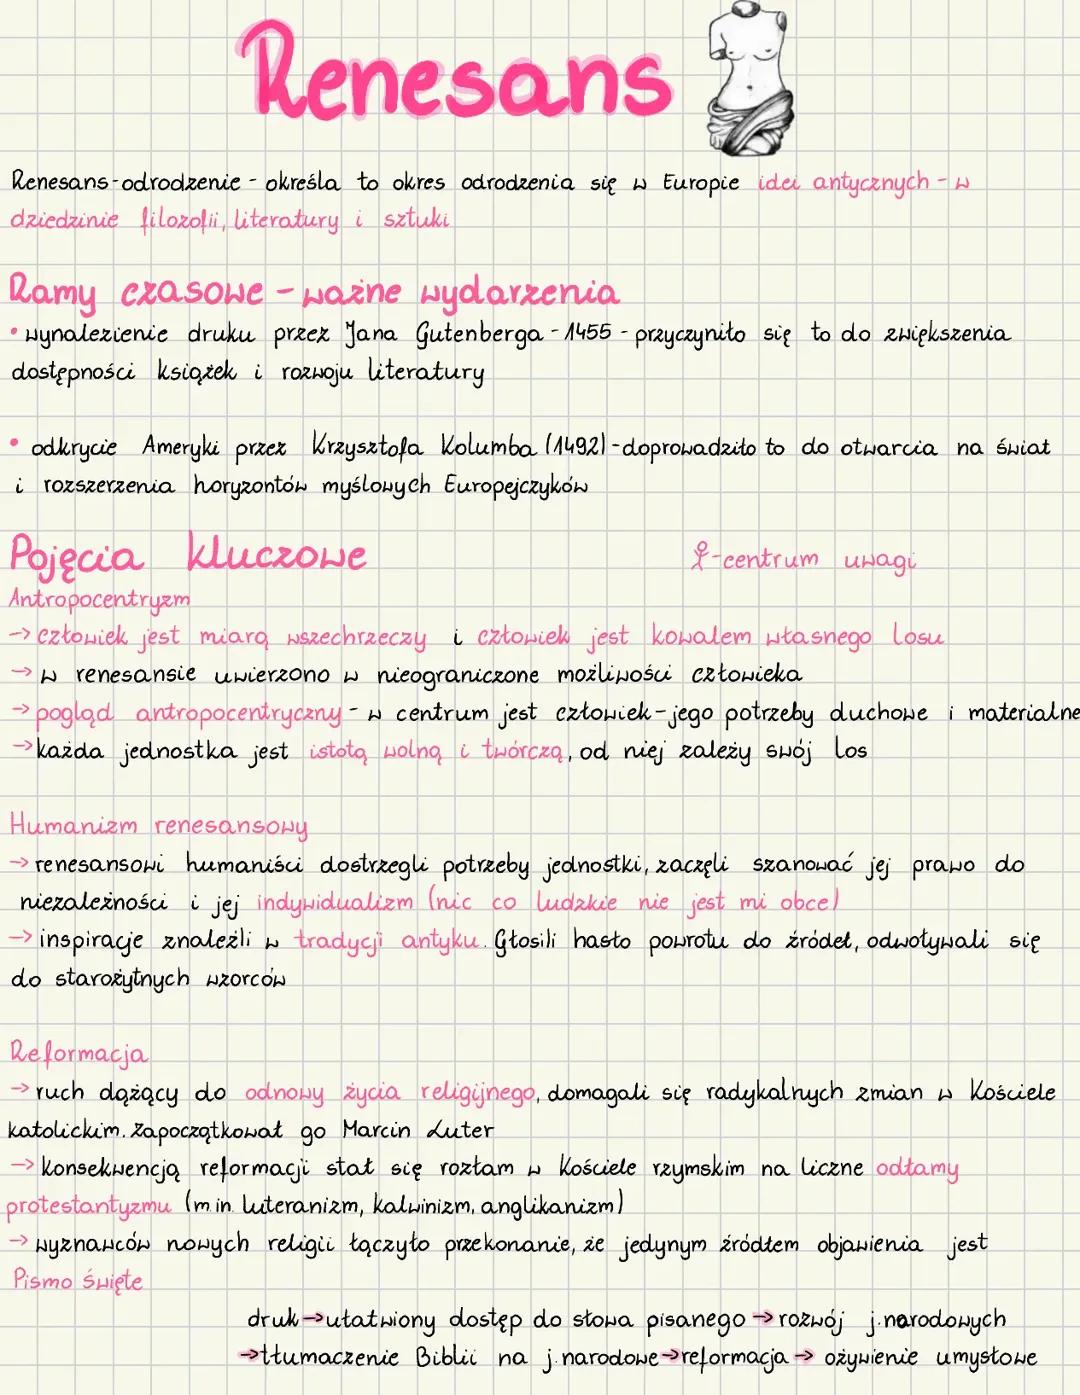 Renesans
Renesans-odrodzenie - określa to okres odrodzenia się w Europie idei antycznych - w
dziedzinie filozofii, literatury i sztuki
Ramy czasowe - ważne wydarzenia
• wynalezienie druku przez Jana Gutenberga - 1455 - przyczyniło się to do zwiększenia
dostępności książek i rozwoju literatury
• odkrycie Ameryki przez Krzysztofa Kolumba (1492) - doprowadziło to do otwarcia na świat
i rozszerzenia horyzontów myślowych Europejczyków
Pojęcia kluczowe
-centrum uwagi
Antropocentryzm
→ człowiek jest miarą wszechrzeczy i człowiek jest kowalem własnego losu
→ w renesansie uwierzono w nieograniczone możliwości człowieka
→ pogląd antropocentryczny - w centrum jest człowiek - jego potrzeby duchowe i materialne
→ każda jednostka jest istotą wolną i twórczą, od niej zależy swój los
Humanizm renesansowy
→ renesansowi humaniści dostrzegli potrzeby jednostki, zaczęli szanować jej prawo do
niezależności i jej indywidualizm (nic co ludzkie nie jest mi obce)
→ inspiracje znaleźli w tradycji antyku. Głosili hasło powrotu do źródeł, odwoływali się
do starożytnych wzorców
Reformacja
→ ruch dążący do odnowy życia religijnego, domagali się radykalnych zmian w Kościele
katolickim. Zapoczątkował go Marcin Luter
→ konsekwencją reformacji stał się rozłam w Kościele rzymskim na liczne odłamy
protestantyzmu (m.in. luteranizm, kalwinizm, anglikanizm)
→ wyznawców nowych religii łączyło przekonanie, że jedynym źródłem objawienia jest
Pismo Święte
druk → ułatwiony dostęp do słowa pisanego → rozwój j. narodowych
→ tłumaczenie Biblii na j. narodowe → reformacja → ożywienie umysłowe